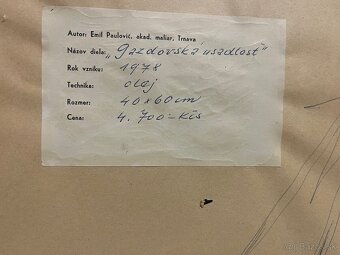 Autor: Emil Paulovič, akad. maliar, Trnava
Názov diela: „Gazdovská usadlosť"
Rok vzniku: 1978
Technika: olej
Rozmer: 40x60cm
Cena: 4.700,- Kčs